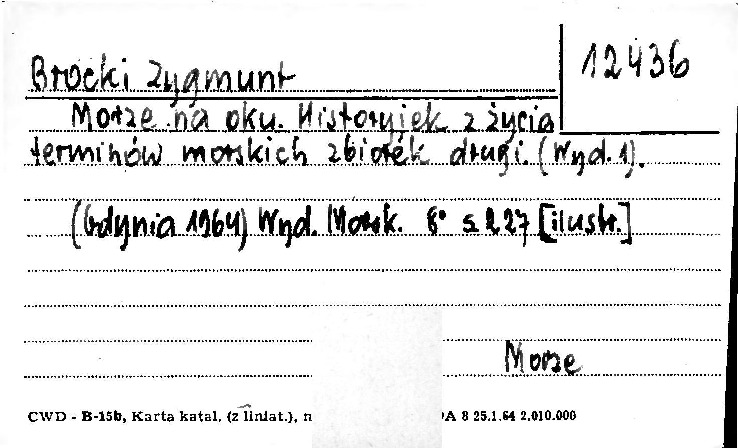 12436
Brocki Zygmunt
Morze na oku. Historyjek z życia
terminów morskich zbiorek drugi. (Wyd. 1).
(Gdynia 1964) Wyd. Morsk. 8° s 227 [ilustr.]
Morze
CWD - B-15b, Karta katal. (z liniat.), n A 8 25.1.64 2.010.000